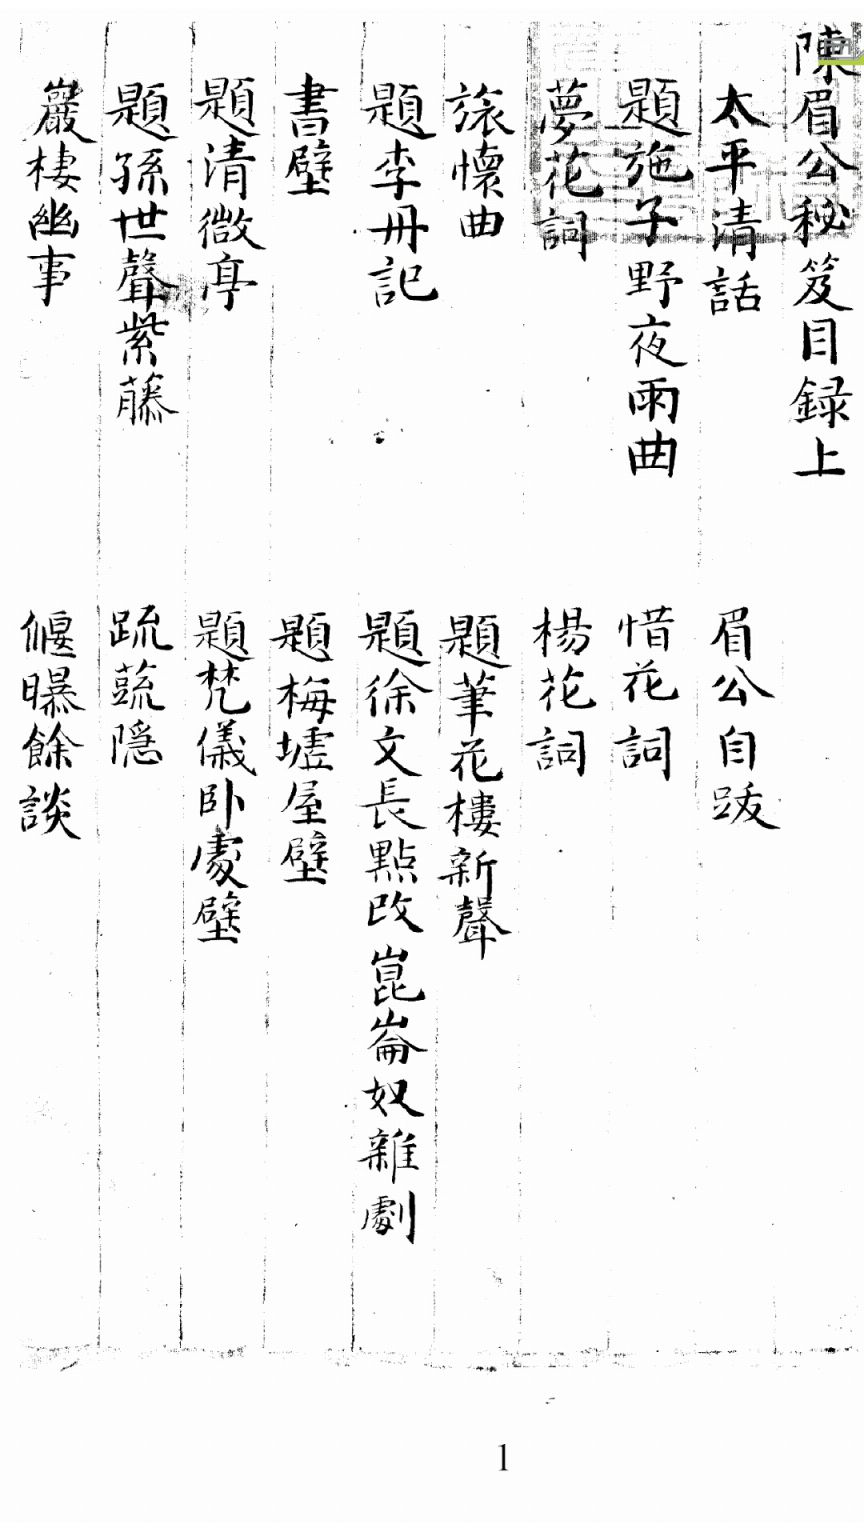 陳眉公秘笈目録上
太平清話 眉公自跋
題施子野夜雨曲 惜花詞
夢花詞 楊花詞
旅懷曲 題筆花樓新聲
題李丹記 題徐文長點改崑崙奴雜劇
書壁 題梅墟屋壁
題清微亭 題梵儀卧處壁
題孫世聲紫藤 䟽蔬隱
巖棲幽事 偃曝餘談
1